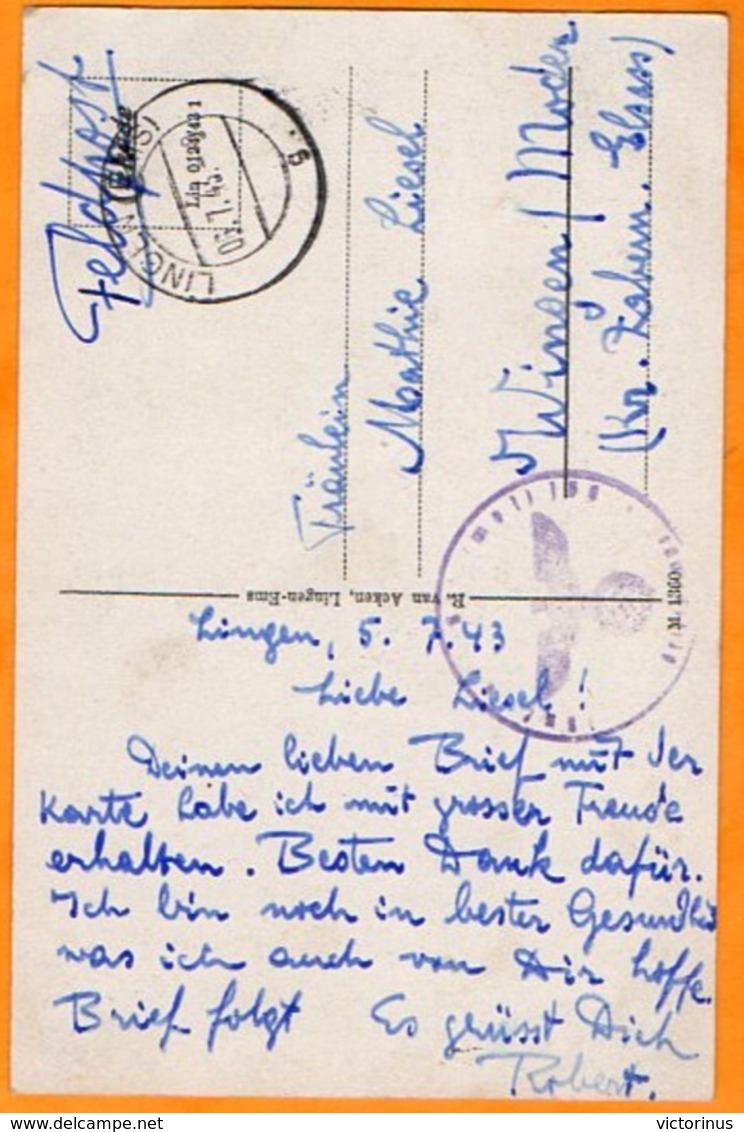 Feldpost
LINGEN (EMS)
05.7.43.
Fräulein
Mathie Liesel
Wingen / Moder
(Kr. Zabern. Elsass)
R. van Acken, Lingen-Ems
M 1360
Lingen, 5. 7. 43
Liebe Liesel!
Deinen lieben Brief mit der
Karte habe ich mit grosser Freude
erhalten. Besten Dank dafür.
Ich bin noch in bester Gesundheit
was ich auch von Dir hoffe.
Brief folgt Es grüsst Dich
Robert.
delcampe.net
victorinus